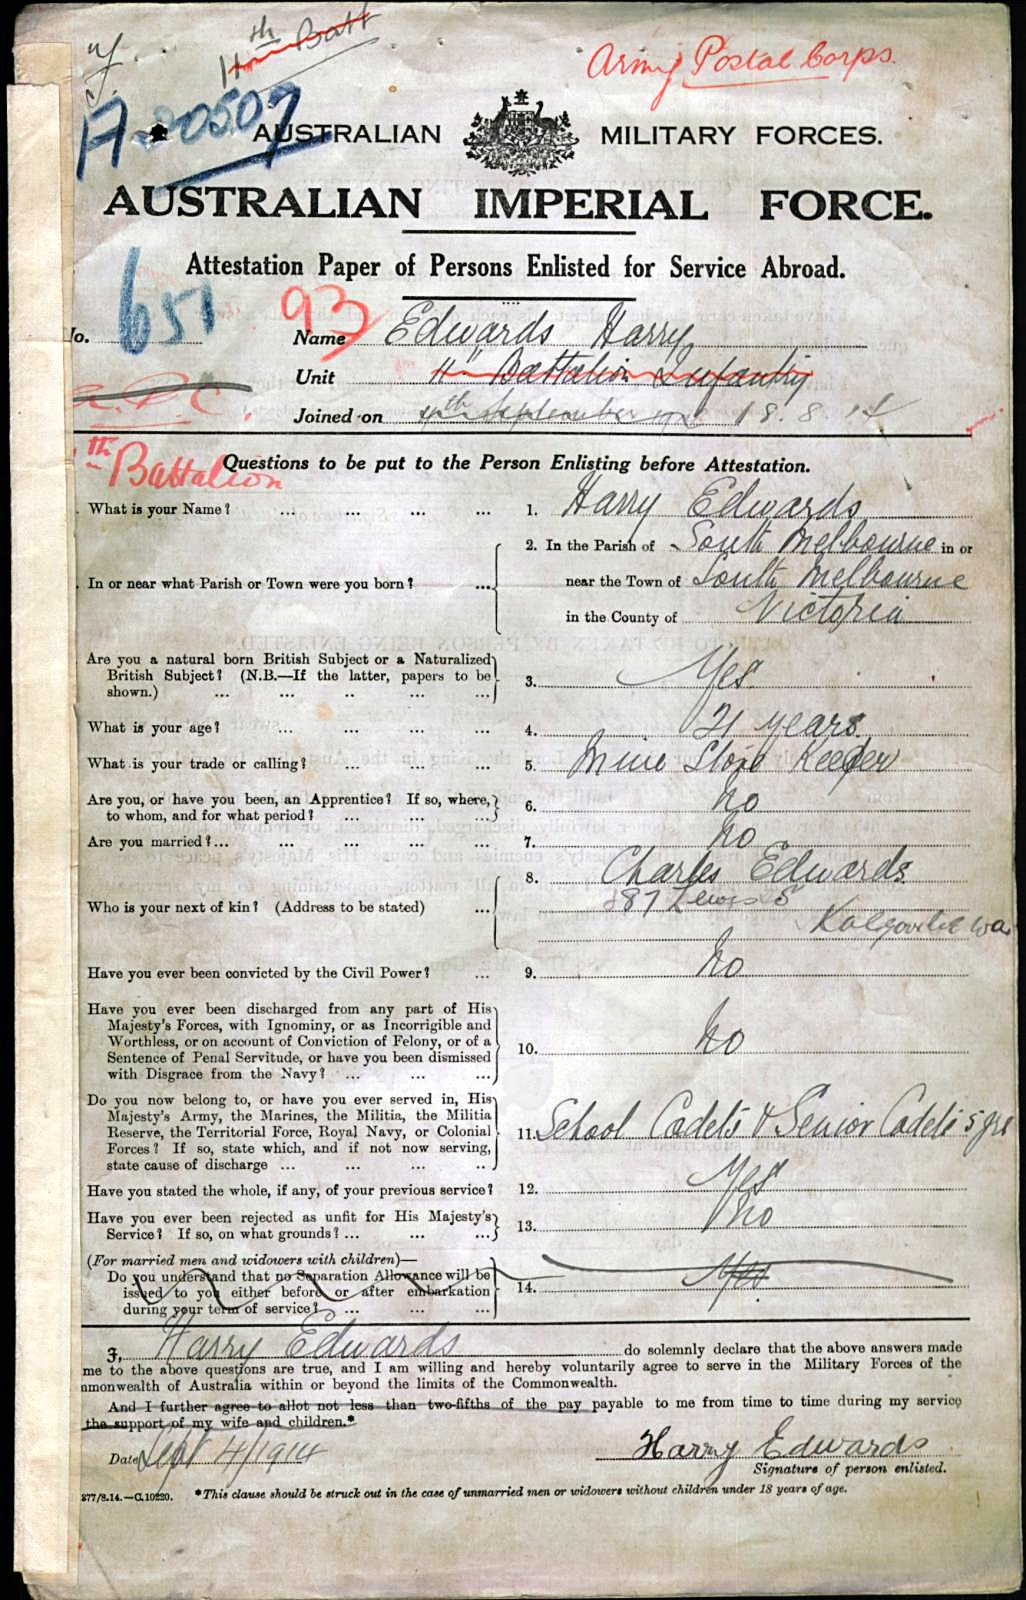 11th Batt
Army Postal Corps.
A 20507
AUSTRALIAN MILITARY FORCES.
AUSTRALIAN IMPERIAL FORCE.
Attestation Paper of Persons Enlisted for Service Abroad.
651
93
No.
Name Edwards Harry
Unit 11th Battalion Infantry
A.P.C.
Joined on 4th September 1914 18.8.14
th Battalion
Questions to be put to the Person Enlisting before Attestation.
What is your Name? ... ... ... ... 1. Harry Edwards
2. In the Parish of South Melbourne in or
In or near what Parish or Town were you born? ... near the Town of South Melbourne
in the County of Victoria
Are you a natural born British Subject or a Naturalized
British Subject? (N.B.—If the latter, papers to be
shown.) ... ... .. ... ... 3. Yes
What is your age? ... ... ... ... 4. 21 years.
What is your trade or calling? ... ... ... 5. Mine Store Keeper
Are you, or have you been, an Apprentice? If so, where,
to whom, and for what period? ... ... ... 6. No
Are you married?... ... ... ... ... 7. No
8. Charles Edwards
Who is your next of kin? (Address to be stated) ... 287 Lewis S
Kalgoorlie WA
Have you ever been convicted by the Civil Power? ... 9. No
Have you ever been discharged from any part of His
Majesty's Forces, with Ignominy, or as Incorrigible and
Worthless, or on account of Conviction of Felony, or of a
Sentence of Penal Servitude, or have you been dismissed
with Disgrace from the Navy? ... ... ... 10. No
Do you now belong to, or have you ever served in, His
Majesty's Army, the Marines, the Militia, the Militia
Reserve, the Territorial Force, Royal Navy, or Colonial
Forces? If so, state which, and if not now serving,
state cause of discharge ... ... ... .. 11. School Cadets & Senior Cadets 5 yrs
Have you stated the whole, if any, of your previous service? 12. Yes
Have you ever been rejected as unfit for His Majesty's
Service? If so, on what grounds? ... ... ... 13. No
(For married men and widowers with children)—
Do you understand that no Separation Allowance will be
issued to you either before or after embarkation
during your term of service? ... ... ... 14. Yes
I, Harry Edwards do solemnly declare that the above answers made
me to the above questions are true, and I am willing and hereby voluntarily agree to serve in the Military Forces of the
mmonwealth of Australia within or beyond the limits of the Commonwealth.
And I further agree to allot not less than two-fifths of the pay payable to me from time to time during my service
the support of my wife and children.*
Date Sept 4/1914 Harry Edwards
Signature of person enlisted.
377/8.14.—C.10220. *This clause should be struck out in the case of unmarried men or widowers without children under 18 years of age.